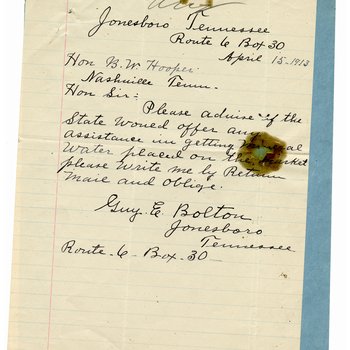 Jonesboro Tennessee
Route 6 Box 30
April 15-1913
Hon B.W. Hooper
Nashville Tenn.
Hon Sir:
Please advise if the
State Woued offer any
assistance in getting Mineral
Water placed on the Market
please Write me by Return
Maie and oblige.
Guy E. Bolton
Jonesboro
Tennessee
Route-6-Box-30